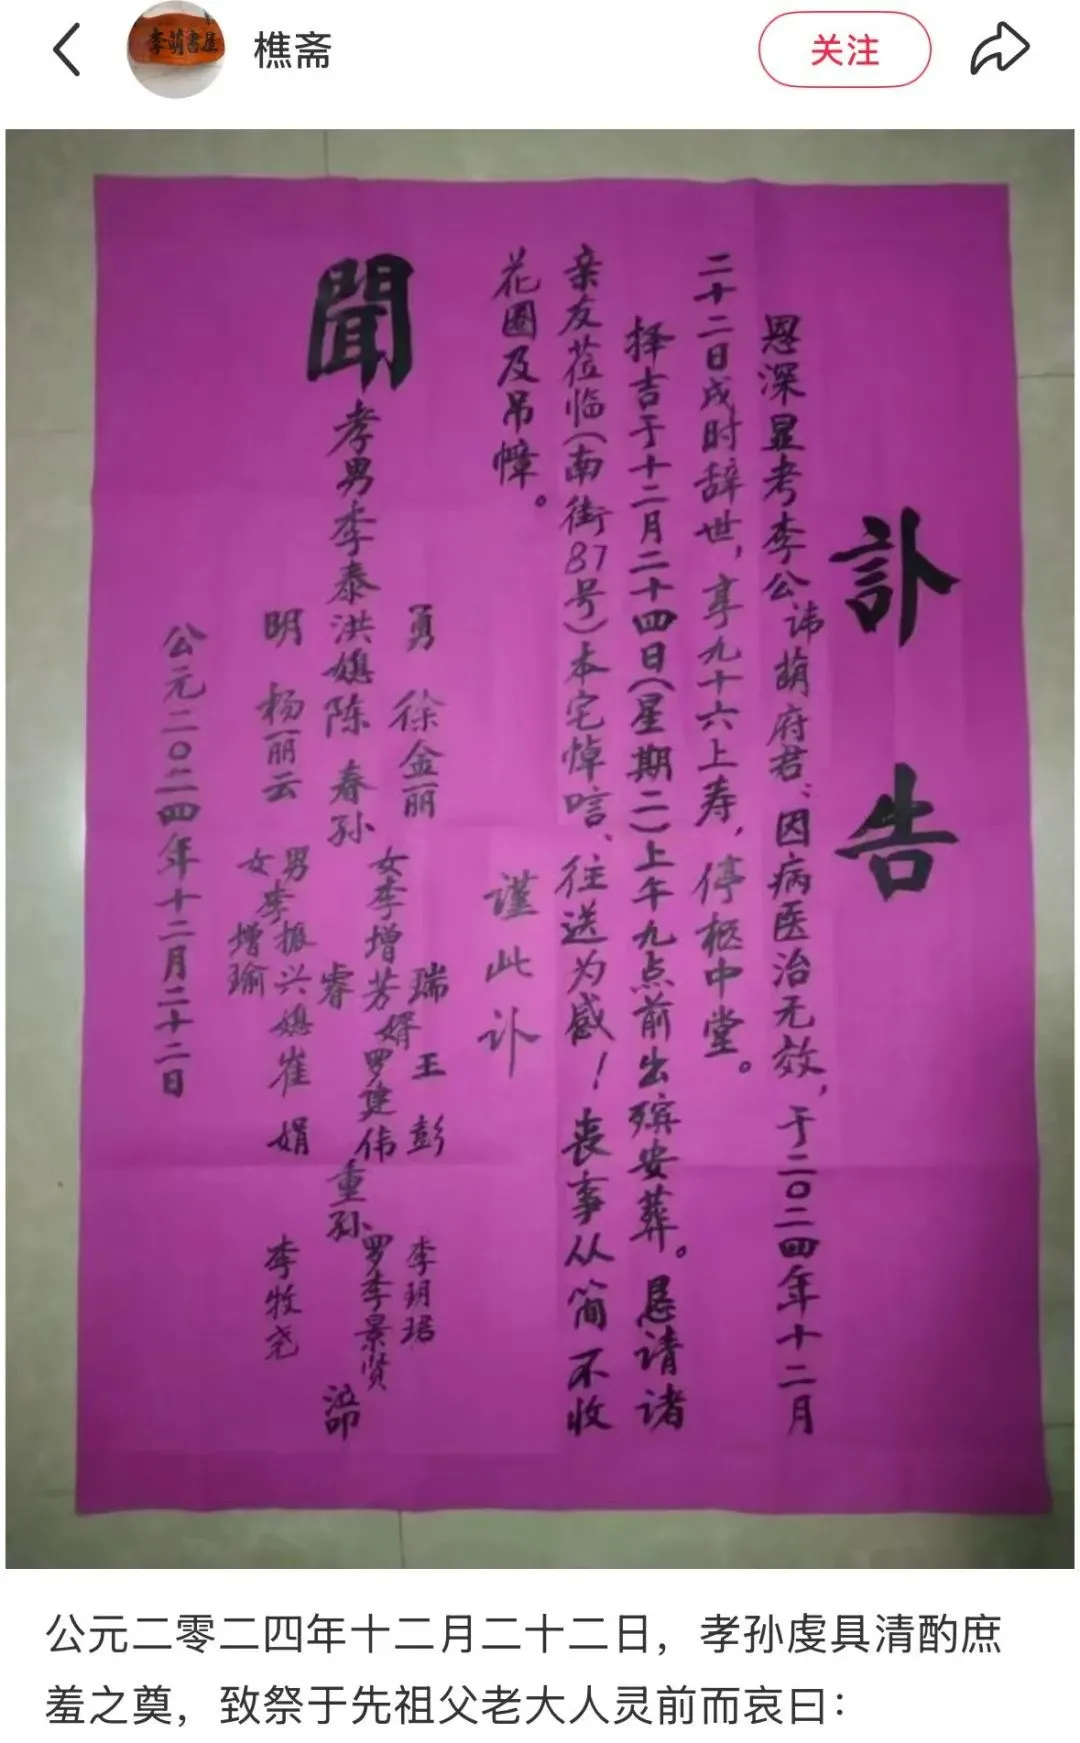 李萌書屋
樵斋
关注
訃告
恩深显考李公讳萌府君,因病医治无效,于二〇二四年十二月
二十二日戌时辞世,享九十六上寿,停柩中堂。
择吉于十二月二十四日(星期二)上午九点前出殡安葬。恳请诸
亲友莅临(南街87号)本宅悼唁、往送为感!丧事从简不收
花圈及吊幛。
谨此讣
聞
勇 徐金丽
孝男李泰洪媳陈春
明 杨丽云
孙
瑞 王彭
女李增芳婿罗建伟
睿
男李振兴媳崔娟
女 增瑜
重孙
李玥珺
罗李景贤
李牧尧
泣叩
公元二〇二四年十二月二十二日
公元二零二四年十二月二十二日,孝孙虔具清酌庶
羞之奠,致祭于先祖父老大人灵前而哀曰: